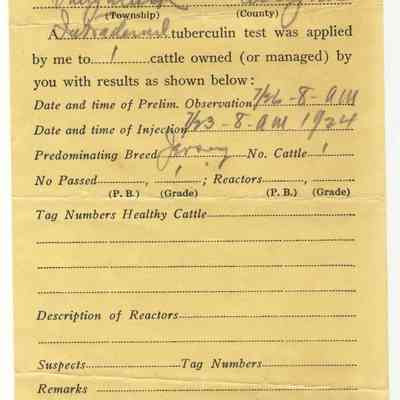 (Township) (County)
A Intradermal tuberculin test was applied
by me to 1 cattle owned (or managed) by
you with results as shown below:
Date and time of Prelim. Observation 7/26-8-AM
Date and time of Injection 7/23-8-AM 1924
Predominating Breed Jersey No. Cattle 1
No Passed , 1 ; Reactors ,
(P. B.) (Grade) (P. B.) (Grade)
Tag Numbers Healthy Cattle
Description of Reactors
Suspects Tag Numbers
Remarks